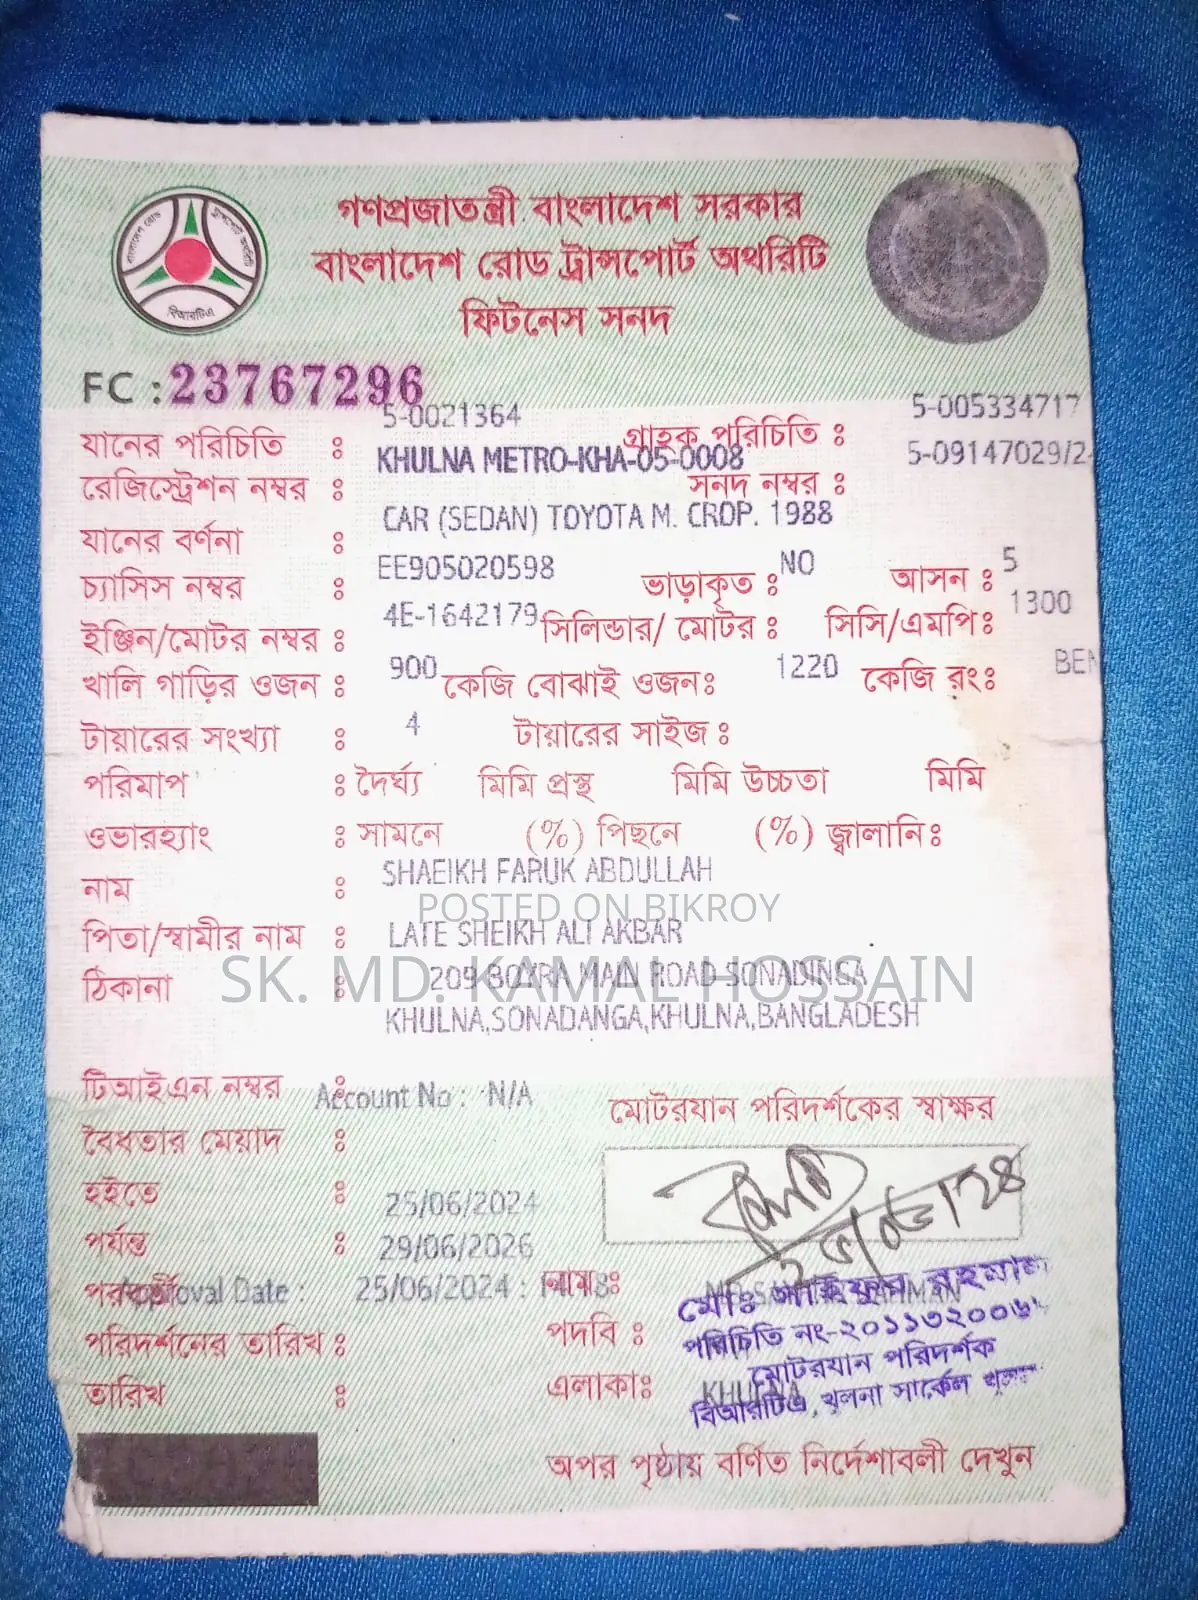 গণপ্রজাতন্ত্রী বাংলাদেশ সরকার
বাংলাদেশ রোড ট্রান্সপোর্ট অথরিটি
ফিটনেস সনদ
বিআরটিএ
FC : 23767296
যানের পরিচিতি : 5-0021364 গ্রাহক পরিচিতি : 5-005334717
রেজিস্ট্রেশন নম্বর : KHULNA METRO-KHA-05-0008 সনদ নম্বর : 5-09147029/2
যানের বর্ণনা : CAR (SEDAN) TOYOTA M. CROP. 1988
চ্যাসিস নম্বর : EE905020598 ভাড়াকৃত : NO আসন : 5
ইঞ্জিন/মোটর নম্বর : 4E-1642179 সিলিন্ডার/ মোটর : সিসি/এমপি: 1300
খালি গাড়ির ওজন : 900 কেজি বোঝাই ওজন: 1220 কেজি রং:
টায়ারের সংখ্যা : 4 টায়ারের সাইজ :
পরিমাপ : দৈর্ঘ্য মিমি প্রস্থ মিমি উচ্চতা মিমি
ওভারহ্যাং : সামনে (%) পিছনে (%) জ্বালানি:
নাম : SHAEIKH FARUK ABDULLAH
POSTED ON BIKROY
পিতা/স্বামীর নাম : LATE SHEIKH ALI AKBAR
SK. MD. KAMAL HOSSAIN
ঠিকানা : 209 BOYRA MAIN ROAD-SONADINGA
KHULNA,SONADANGA,KHULNA,BANGLADESH
টিআইএন নম্বর : Account No : N/A
মোটরযান পরিদর্শকের স্বাক্ষর
বৈধতার মেয়াদ :
হইতে : 25/06/2024
পর্যন্ত : 29/06/2026
পরবর্তী Approval Date : 25/06/2024 : নাম:
পরিদর্শনের তারিখ : পদবি :
তারিখ : এলাকা: KHULNA
মোঃ রহমান
পরিচিতি নং-
মোটরযান পরিদর্শক
বিআরটিএ, খুলনা সার্কেল
অপর পৃষ্ঠায় বর্ণিত নির্দেশাবলী দেখুন